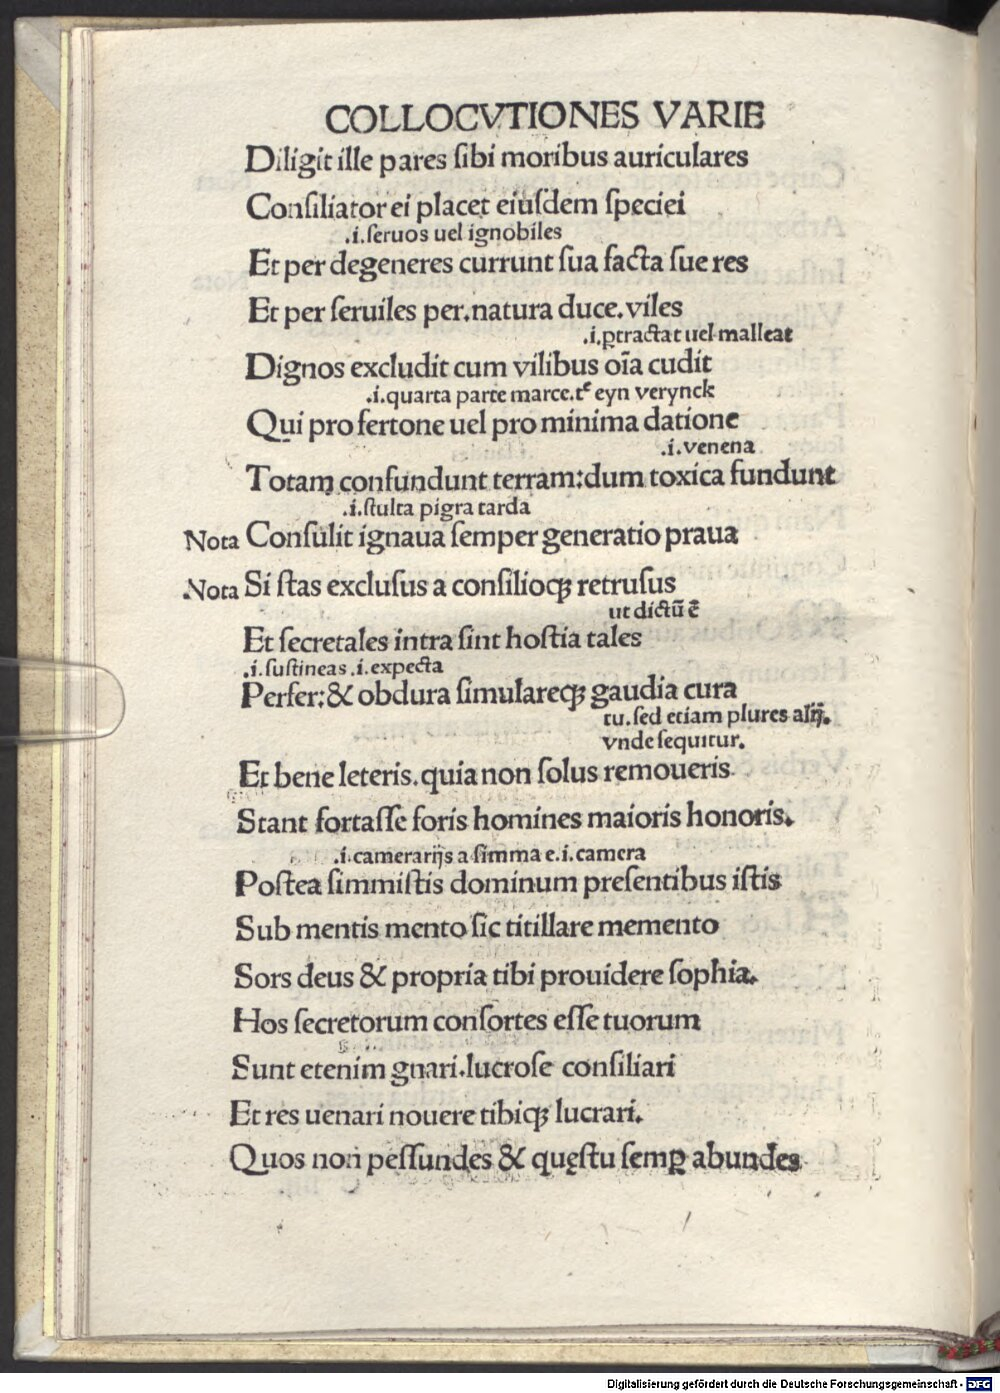 COLLOCVTIONES VARIE
Diligit ille pares sibi moribus auriculares
Consiliator ei placet eiusdem speciei
.i.seruos uel ignobiles
Et per degeneres currunt sua facta sue res
Et per seruiles per.natura duce.viles
.i.ꝑtractat uel malleat
Dignos excludit cum vilibus oīa cudit
.i.quarta parte marce. eyn verynck
Qui pro fertone uel pro minima datione
.i.venena
Totam confundunt terram:dum toxica fundunt
.i.stulta pigra tarda
Nota Consulit ignaua semper generatio praua
.Nota Si stas exclusus a consilioqꝫ retrusus
ut dictū ē
Et secretales intra sint hostia tales
.i.sustineas .i.expecta
Perfer:& obdura simulareqꝫ gaudia cura
tu.sed etiam plures alij.
vnde sequitur.
Et bene leteris.quia non solus remoueris
Stant fortasse foris homines maioris honoris.
.i.camerarijs a simma e.i.camera
Postea simmistis dominum presentibus istis
Sub mentis mento sic titillare memento
Sors deus & propria tibi prouidere sophia.
Hos secretorum consortes esse tuorum
Sunt etenim gnari.lucrose consiliari
Et res uenari nouere tibiqꝫ lucrari.
Quos non pessundes & quęstu semꝑ abundes
Digitalisierung gefördert durch die Deutsche Forschungsgemeinschaft - DFG